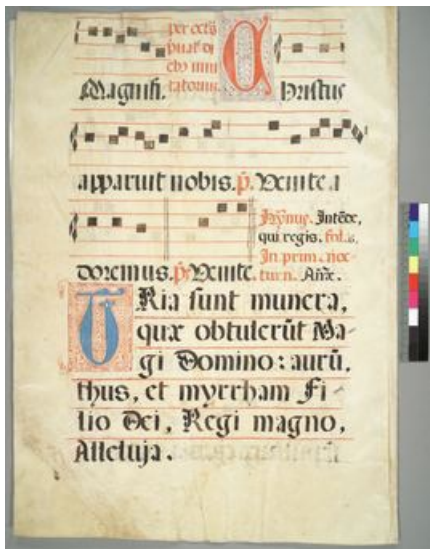 per octa
Magnifi. Christus
apparuit nobis. p̃. Venite a
Hymnus. Intẽde,
qui regis. fol.
In prim. noc
doremus. p̃s Venite. turn. Añæ.
TRia sunt munera,
quæ obtulerũt Ma-
gi Domino: aurũ,
thus, et myrrham Fi-
lio Dei, Regi magno,
Alleluja.